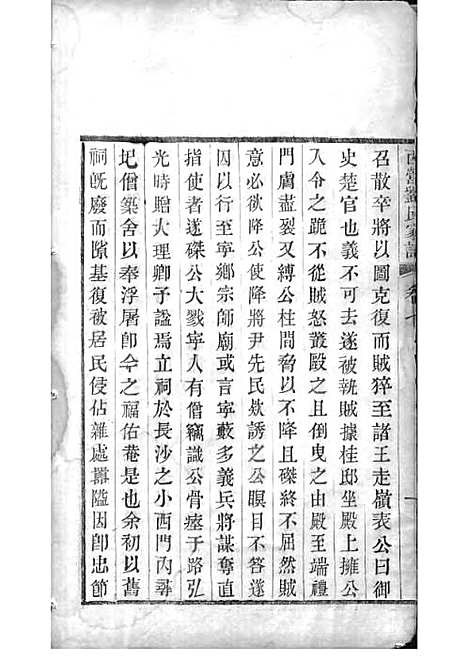 西營劉氏家譜 卷
召散卒將以圖克復而賊猝至諸王走嶺表公曰御
史楚官也義不可去遂被執賊據桂邸坐殿上擁公
入令之跪不從賊怒叢毆之且倒曳之由殿至端禮
門膚盡裂又縛公柱間脅以不降且磔終不屈然賊
意必欲降公使降將尹先民欸誘之公瞑目不答遂
囚以行至寧鄉宗師廟或言寧藪多義兵將謀奪直
指使者遂磔公大戮寧人有僧竊識公骨瘞于路弘
光時贈大理卿予謚焉立祠於長沙之小西門內尋
圯僧築舍以奉浮屠卽今之福佑菴是也余初以舊
祠旣廢而隙基復被居民侵佔雜處囂隘因卽忠節